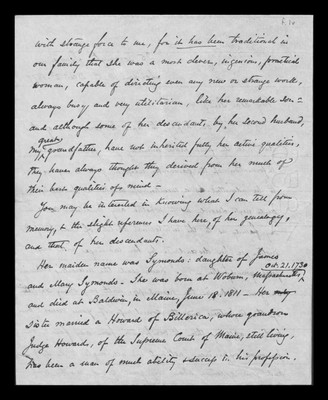 with strange force to me, for it has been traditional in
our family that she was a most clever, ingenious, practical
woman, capable of directing even any new or strange work,
always busy and very utilitarian, like her remarkable son –
and although some of her descendants, by her second husband,
great
my grandfather, have not inherited fully her active qualities,
they have always thought they derived from her much of
their best qualities of mind –
You may be interested in knowing what I can tell from
memory, & the slight references I have here, of her genealogy,
and that of her descendants.
Her maiden name was Symonds: daughter of James
Oct. 21. 1730
and Mary Symonds – She was born at Woburn, Massachusetts,
and died at Baldwin, in Maine, June 18. 1811 – Her only
Sister married a Howard of Billerica, whose grandson
Judge Howard, of the Supreme Court of Maine, still living,
has been a man of much ability & success in his profession.